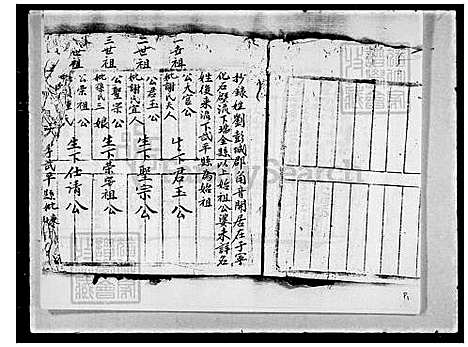 抄錄姓劉彭城郡角音開居在于寧
化石壁流下瑞金縣以上始祖公婆未詳名
姓後來流下武平縣為始祖
一世祖
公大官公
妣謝氏夫人
生下君玉公
二世祖
公君玉公
妣謝氏宜人
生下聖宗公
三世祖
公聖宗公
妣張氏三娘
生下榮祖公
世祖
公榮祖公
生下仕清公
武平縣
FamilySearch
P1